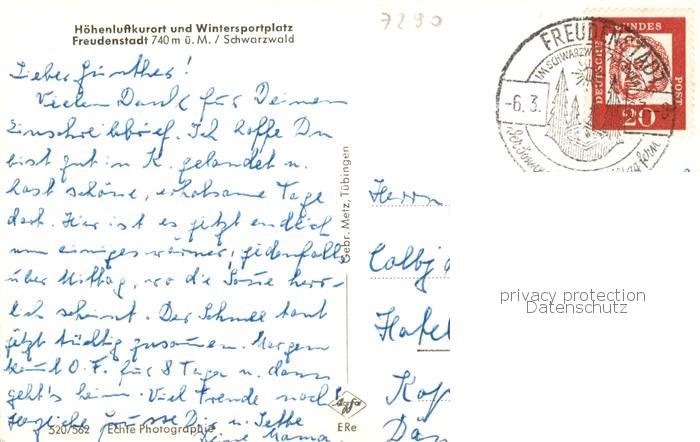 7290
Höhenluftkurort und Wintersportplatz
Freudenstadt 740 m ü. M. / Schwarzwald
Lieber Günther!
Vielen Dank für Deinen
Einschreibbrief. Ich hoffe Du
bist gut in K. gelandet u.
hast schöne, erholsame Tage
dort. Hier ist es jetzt endlich
um einiges wärmer, jedenfalls
über Mittag, wo die Sonne herr-
lich scheint. Der Schnee taut
jetzt tüchtig zusammen. Morgen
kommt O. F. für 8 Tage u. dann
geht's heim. Viel Freude noch!
Herzliche Grüsse Dir u. Jette
Deine Mama.
520/562 Echte Photographie
Gebr. Metz, Tübingen
Agfa
ERe
FREUDENSTADT
IM SCHWARZWALD
-6.3.
DEUTSCHE BUNDESPOST
20
Herrn
Colbj
Hotel
Kop
Dän
privacy protection
Datenschutz